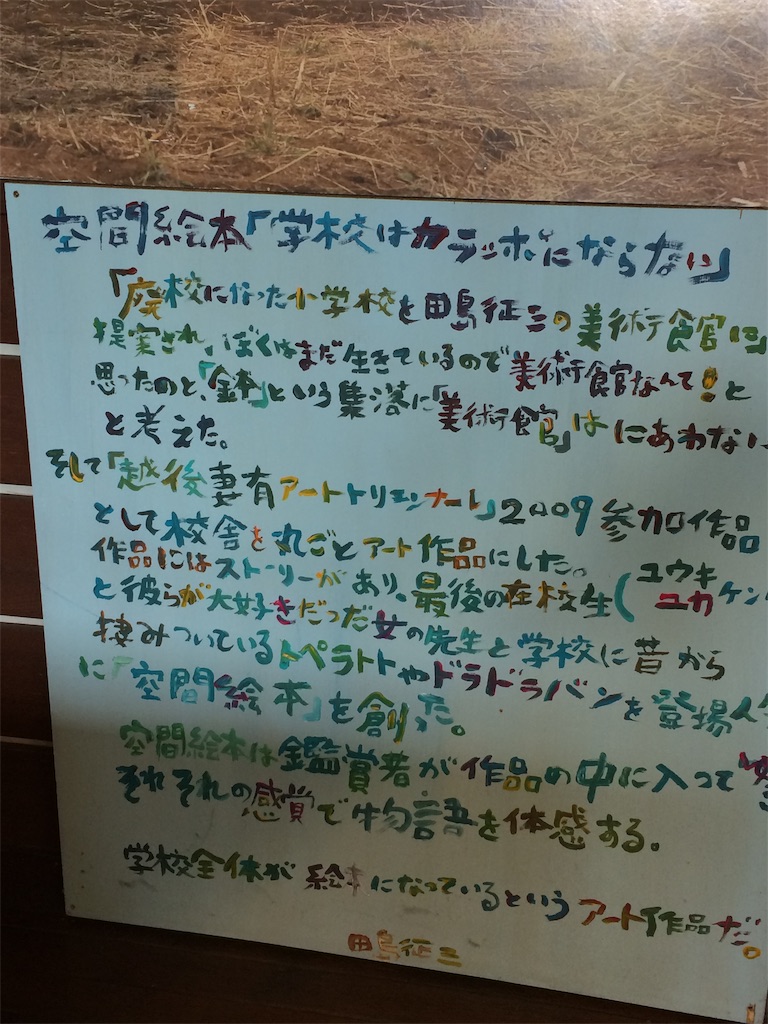 空間絵本「学校はカラッポにならない」
「廃校になった小学校を田島征三の美術館に」
提案され、ぼくはまだ生きているので美術館なんて!と
思ったのと、「鉢」という集落に「美術館」はにあわない
と考えた。
そして「越後妻有アートトリエンナーレ」2009参加作品
として校舎を丸ごとアート作品にした。
作品にはストーリーがあり。最後の在校生(ユウキ ユカ ケン
と彼らが大好きだった女の先生と学校に昔から
棲みついているトペラトトやドラドラバンを登場人
に「空間絵本」を創った。
空間絵本は鑑賞者が作品の中に入って
それぞれの感覚で物語を体感する。
学校全体が絵本になっているというアート作品だ。
田島征三